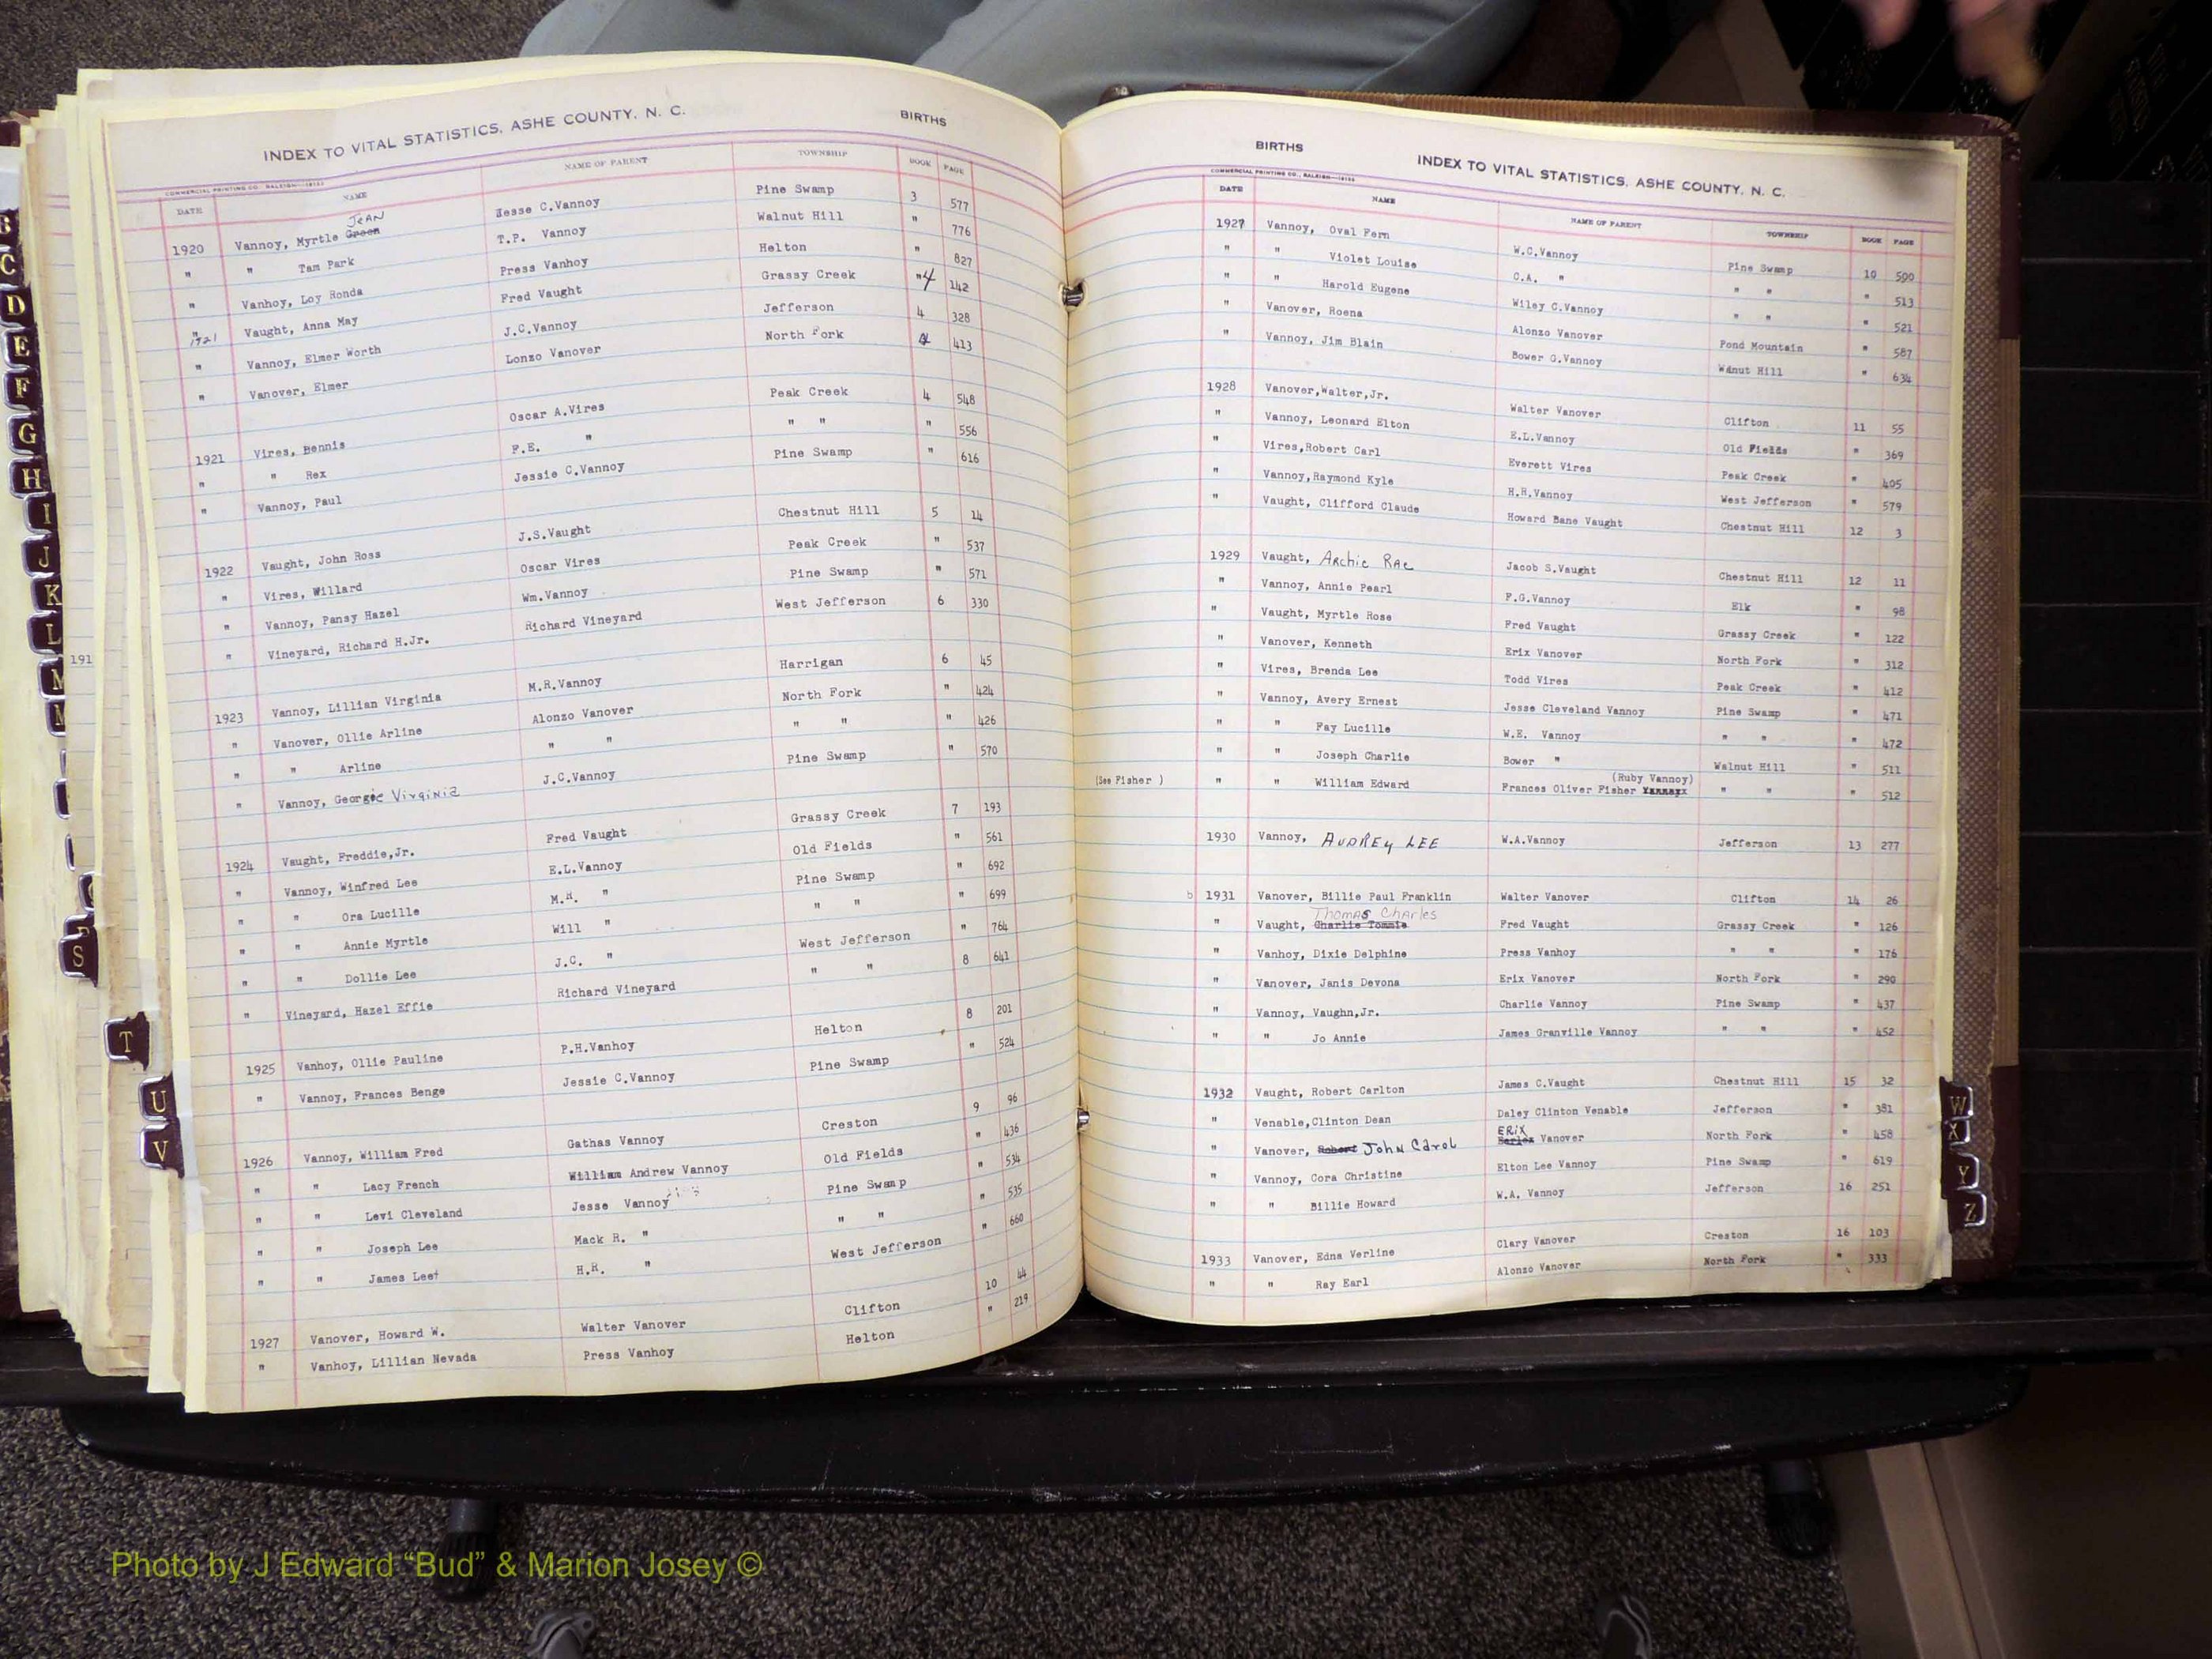 INDEX TO VITAL STATISTICS, ASHE COUNTY, N. C. BIRTHS
COMMERCIAL PRINTING CO., RALEIGH
DATE NAME NAME OF PARENT TOWNSHIP BOOK PAGE
JEAN
1920 Vannoy, Myrtle Green Jesse C.Vannoy Pine Swamp 3 577
" " Tam Park T.P. Vannoy Walnut Hill " 776
" Vanhoy, Loy Ronda Press Vanhoy Helton " 827
" 1921 Vaught, Anna May Fred Vaught Grassy Creek "4 142
" Vannoy, Elmer Worth J.C.Vannoy Jefferson 4 328
" Vanover, Elmer Lonzo Vanover North Fork 4 413
1921 Vires, Bennis Oscar A.Vires Peak Creek 4 548
" " Rex F.E. " " " " 556
" Vannoy, Paul Jessie C.Vannoy Pine Swamp " 616
1922 Vaught, John Ross J.S.Vaught Chestnut Hill 5 14
" Vires, Willard Oscar Vires Peak Creek " 537
" Vannoy, Pansy Hazel Wm.Vannoy Pine Swamp " 571
" Vineyard, Richard H.Jr. Richard Vineyard West Jefferson 6 330
191
1923 Vannoy, Lillian Virginia M.R.Vannoy Harrigan 6 45
" Vanover, Ollie Arline Alonzo Vanover North Fork " 424
" " Arline " " " " " 426
" Vannoy, Georgie Virginia J.C.Vannoy Pine Swamp " 570
1924 Vaught, Freddie,Jr. Fred Vaught Grassy Creek 7 193
" Vannoy, Winfred Lee E.L.Vannoy Old Fields " 561
" " Ora Lucille M.R. " Pine Swamp " 692
" " Annie Myrtle Will " " " " 699
" " Dollie Lee J.C. " West Jefferson " 764
" Vineyard, Hazel Effie Richard Vineyard " " 8 641
1925 Vanhoy, Ollie Pauline P.H.Vanhoy Helton 8 201
" Vannoy, Frances Benge Jessie C.Vannoy Pine Swamp " 524
1926 Vannoy, William Fred Gathas Vannoy Creston 9 96
" " Lacy French William Andrew Vannoy Old Fields " 436
" " Levi Cleveland Jesse Vannoy Pine Swamp " 534
" " Joseph Lee Mack R. " " " " 535
" " James Lee H.R. " West Jefferson " 660
1927 Vanover, Howard W. Walter Vanover Clifton 10 44
" Vanhoy, Lillian Nevada Press Vanhoy Helton " 219
B
C
D
E
F
G
H
I
J
K
L
M
S
T
U
V
BIRTHS INDEX TO VITAL STATISTICS, ASHE COUNTY, N. C.
COMMERCIAL PRINTING CO., RALEIGH
DATE NAME NAME OF PARENT TOWNSHIP BOOK PAGE
1927 Vannoy, Oval Fern W.C.Vannoy Pine Swamp 10 500
" " Violet Louise C.A. " " " " 513
" " Harold Eugene Wiley C.Vannoy " " " 521
" Vanover, Roena Alonzo Vanover Pond Mountain " 587
" Vannoy, Jim Blain Bower G.Vannoy Wanut Hill " 634
1928 Vanover,Walter,Jr. Walter Vanover Clifton 11 55
" Vannoy, Leonard Elton E.L.Vannoy Old Fields " 369
" Vires,Robert Carl Everett Vires Peak Creek " 405
" Vannoy,Raymond Kyle H.H.Vannoy West Jefferson " 579
" Vaught, Clifford Claude Howard Bane Vaught Chestnut Hill 12 3
1929 Vaught, Archie Rae Jacob S.Vaught Chestnut Hill 12 11
" Vannoy, Annie Pearl F.G.Vannoy Elk " 98
" Vaught, Myrtle Rose Fred Vaught Grassy Creek " 122
" Vanover, Kenneth Erix Vanover North Fork " 312
" Vires, Brenda Lee Todd Vires Peak Creek " 412
" Vannoy, Avery Ernest Jesse Cleveland Vannoy Pine Swamp " 471
" " Fay Lucille W.E. Vannoy " " " 472
" " Joseph Charlie Bower " Walnut Hill " 511
(Ruby Vannoy)
(See Fisher ) " " William Edward Frances Oliver Fisher " " " 512
1930 Vannoy, AUDREY LEE W.A.Vannoy Jefferson 13 277
b 1931 Vanover, Billie Paul Franklin Walter Vanover Clifton 14 26
Thomas Charles
" Vaught, Charlie Tommie Fred Vaught Grassy Creek " 126
" Vanhoy, Dixie Delphine Press Vanhoy " " " 176
" Vanover, Janis Devona Erix Vanover North Fork " 290
" Vannoy, Vaughn,Jr. Charlie Vannoy Pine Swamp " 437
" " Jo Annie James Granville Vannoy " " " 452
1932 Vaught, Robert Carlton James C.Vaught Chestnut Hill 15 32
" Venable,Clinton Dean Daley Clinton Venable Jefferson " 381
ERIX
" Vanover, Robert John Carol Vanover North Fork " 458
" Vannoy, Cora Christine Elton Lee Vannoy Pine Swamp " 619
" " Billie Howard W.A. Vannoy Jefferson 16 251
1933 Vanover, Edna Verline Clary Vanover Creston 16 103
" " Ray Earl Alonzo Vanover North Fork " 333
W
X
Y
Z
Photo by J Edward “Bud” & Marion Josey ©